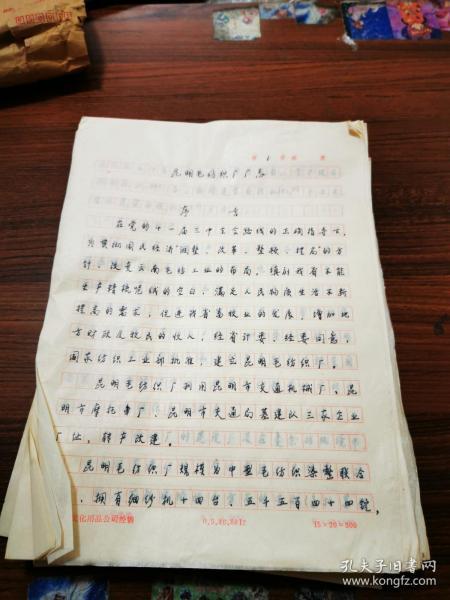 第 1 页
昆明毛纺织厂厂志
序 言
在党的十一届三中全会路线的正确指导下,
为贯彻国民经济“调整、改革、整顿、提高”的方
针,改变云南毛纺工业的布局,填补我省不能
生产精梳毛绒的空白,满足人民物质生活不断
提高的需求,促进我省畜牧业的发展,增加地
方财政及牧民的收入,经省计委、经委同意,
国家纺织工业部批准,建立昆明毛纺织厂。
昆明毛纺织厂利用昆明市交通机械厂、昆
明市摩托车厂、昆明市交通局基建队三家企业
厂址,转产改建。
昆明毛纺织厂规模为中型毛纺织染整联合
,拥有细纱机十四台,五千五百四十四锭,
文化用品公司经销
15×20=300
孔夫子旧书网